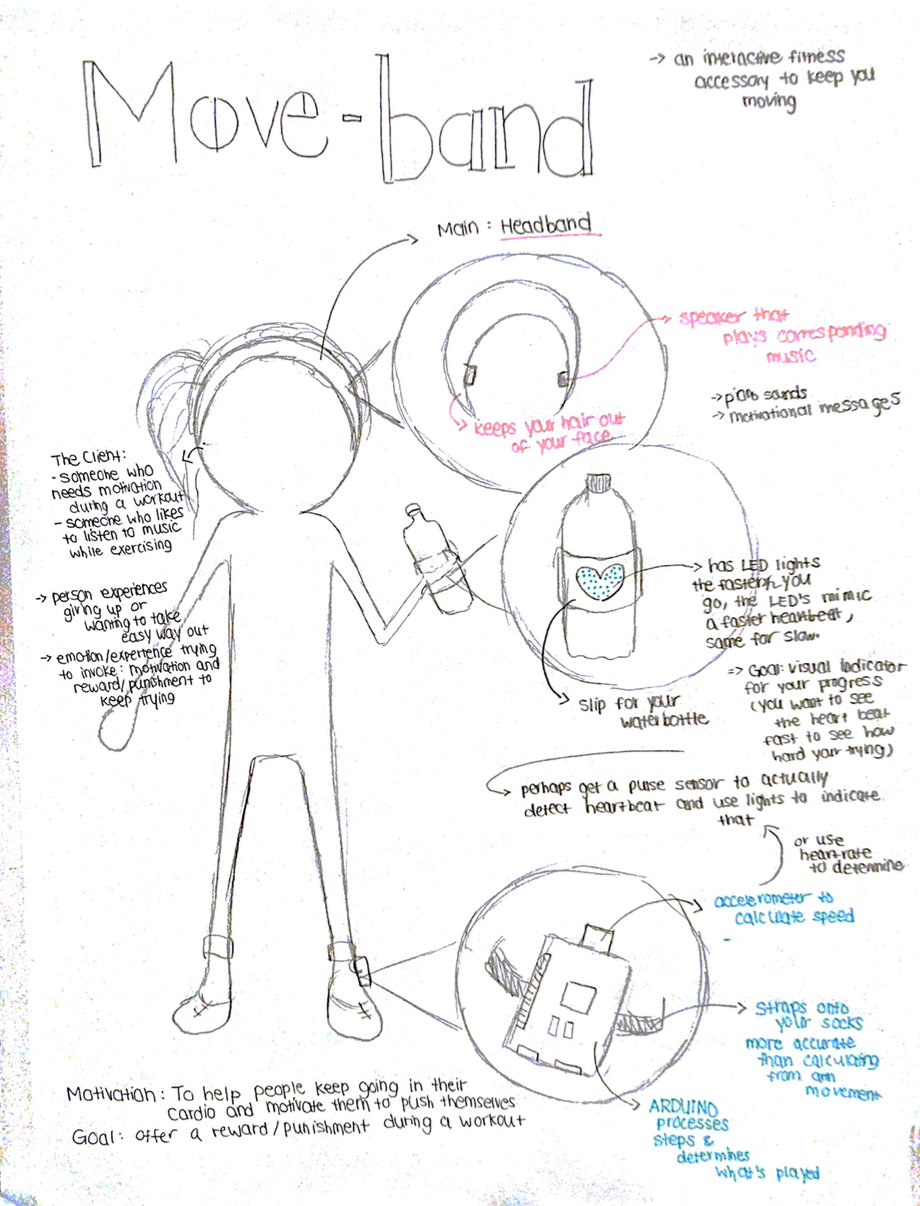 Move-band
-> an interactive fitness
accessory to keep you
moving
Main : Headband
speaker that
plays corresponding
music
-> piano sounds
-> motivational messages
keeps your hair out
of your face
The Client:
- someone who
needs motivation
during a workout
- someone who likes
to listen to music
while exercising
-> person experiences
giving up or
wanting to take
easy way out
-> emotion/experience trying
to invoke: motivation and
reward/punishment to
keep trying
has LED lights
the faster you
go, the LED's mimic
a faster heartbeat,
same for slow.
slip for your
waterbottle
=> Goal: visual indicator
for your progress
(you want to see
the heart beat
fast to see how
hard your trying)
perhaps get a pulse sensor to actually
detect heartbeat and use lights to indicate
that
or use
heartrate
to determine
accelerometer to
calculate speed
straps onto
your socks
more accurate
than calculating
from arm
movement
ARDUINO
processes
steps &
determines
what's played
Motivation: To help people keep going in their
cardio and motivate them to push themselves
Goal: offer a reward/punishment during a workout